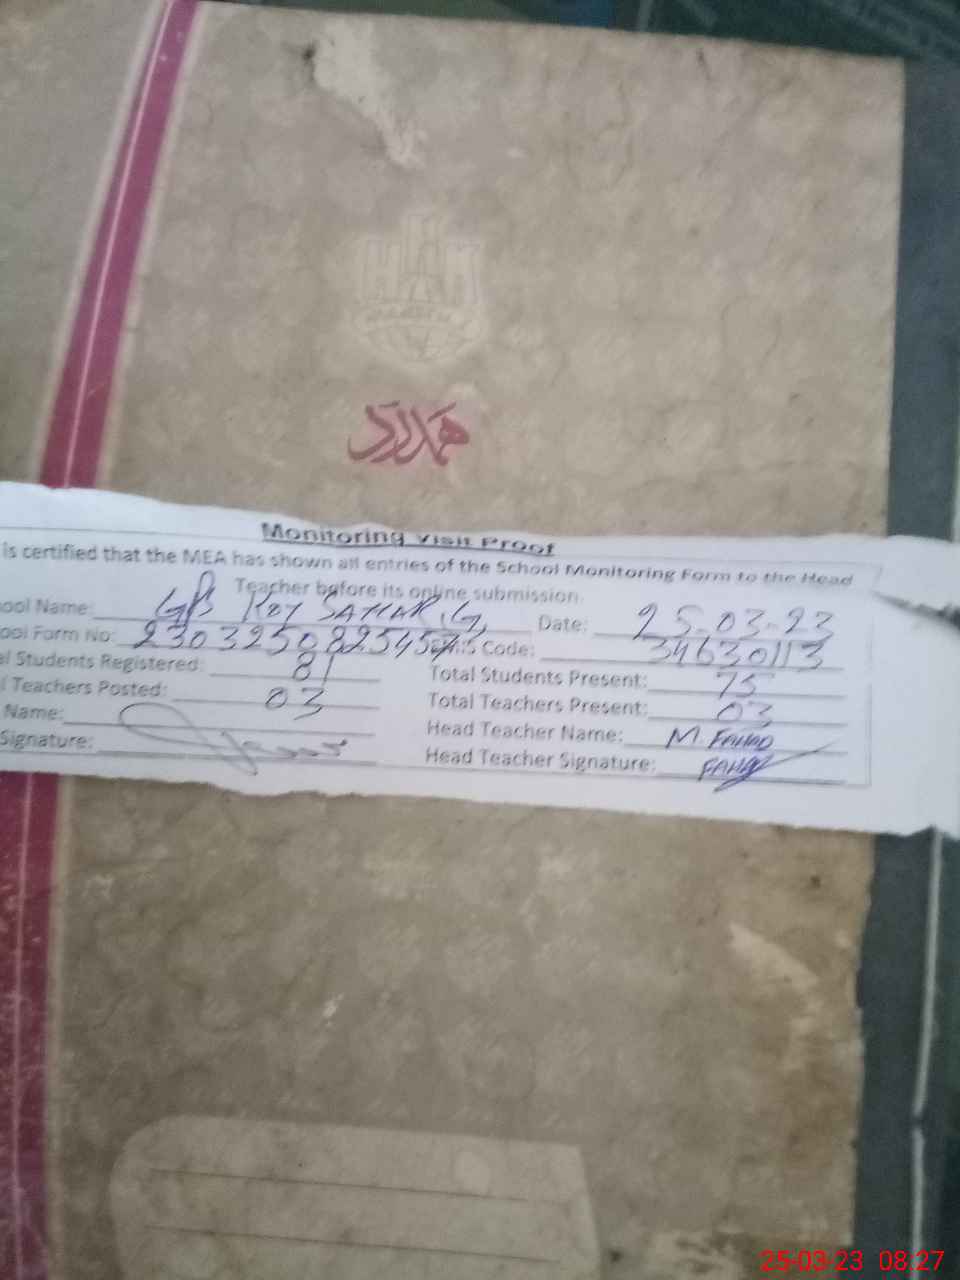 ہمدرد
Monitoring Visit Proof
is certified that the MEA has shown all entries of the School Monitoring Form to the Head
Teacher before its online submission.
ool Name: GPS KOT SAHAR Date: 25-03-23
ool Form No: Code: 34630113
al Students Registered: 81 Total Students Present: 75
l Teachers Posted: 03 Total Teachers Present: 03
Name: Head Teacher Name: M. FAHAD
Signature: Head Teacher Signature: FAHAD
25-03-23 08:27